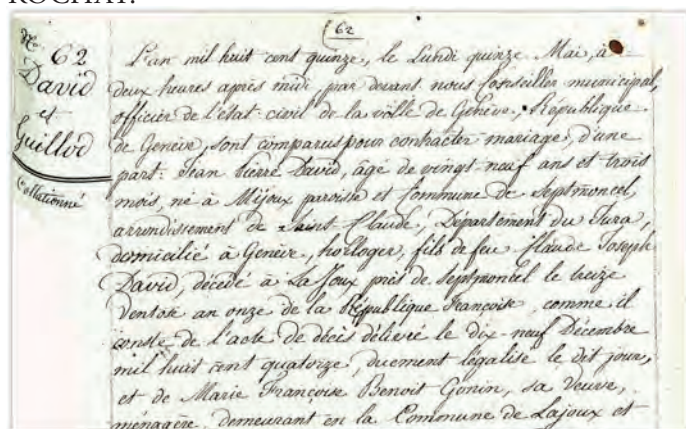 ROCHAT.
62
No 62
David
et
Guillod
Collationné
L'an mil huit cent quinze, le Lundi quinze Mai, à
deux heures après midi, par devant nous Conseiller municipal,
officier de l'état civil de la ville de Genève, République
de Genève, sont comparus pour contracter mariage, d'une
part: Jean Pierre David, âgé de vingt-neuf ans et trois
mois, né à Mijoux paroisse et Commune de Septmoncel,
arrondissement de Saint Claude, Département du Jura,
domicilié à Genève, horloger, fils de feu Claude Joseph
David, décédé à La Joux près de Septmoncel le treize
Ventose an onze de la République Françoise, comme il
conste de l'acte de décès délivré le dix-neuf Décembre
mil huit cent quatorze, duement légalisé le dit jour,
et de Marie Françoise Benoit Gonin, sa Veuve,
ménagère, demeurant en la Commune de Lajoux et